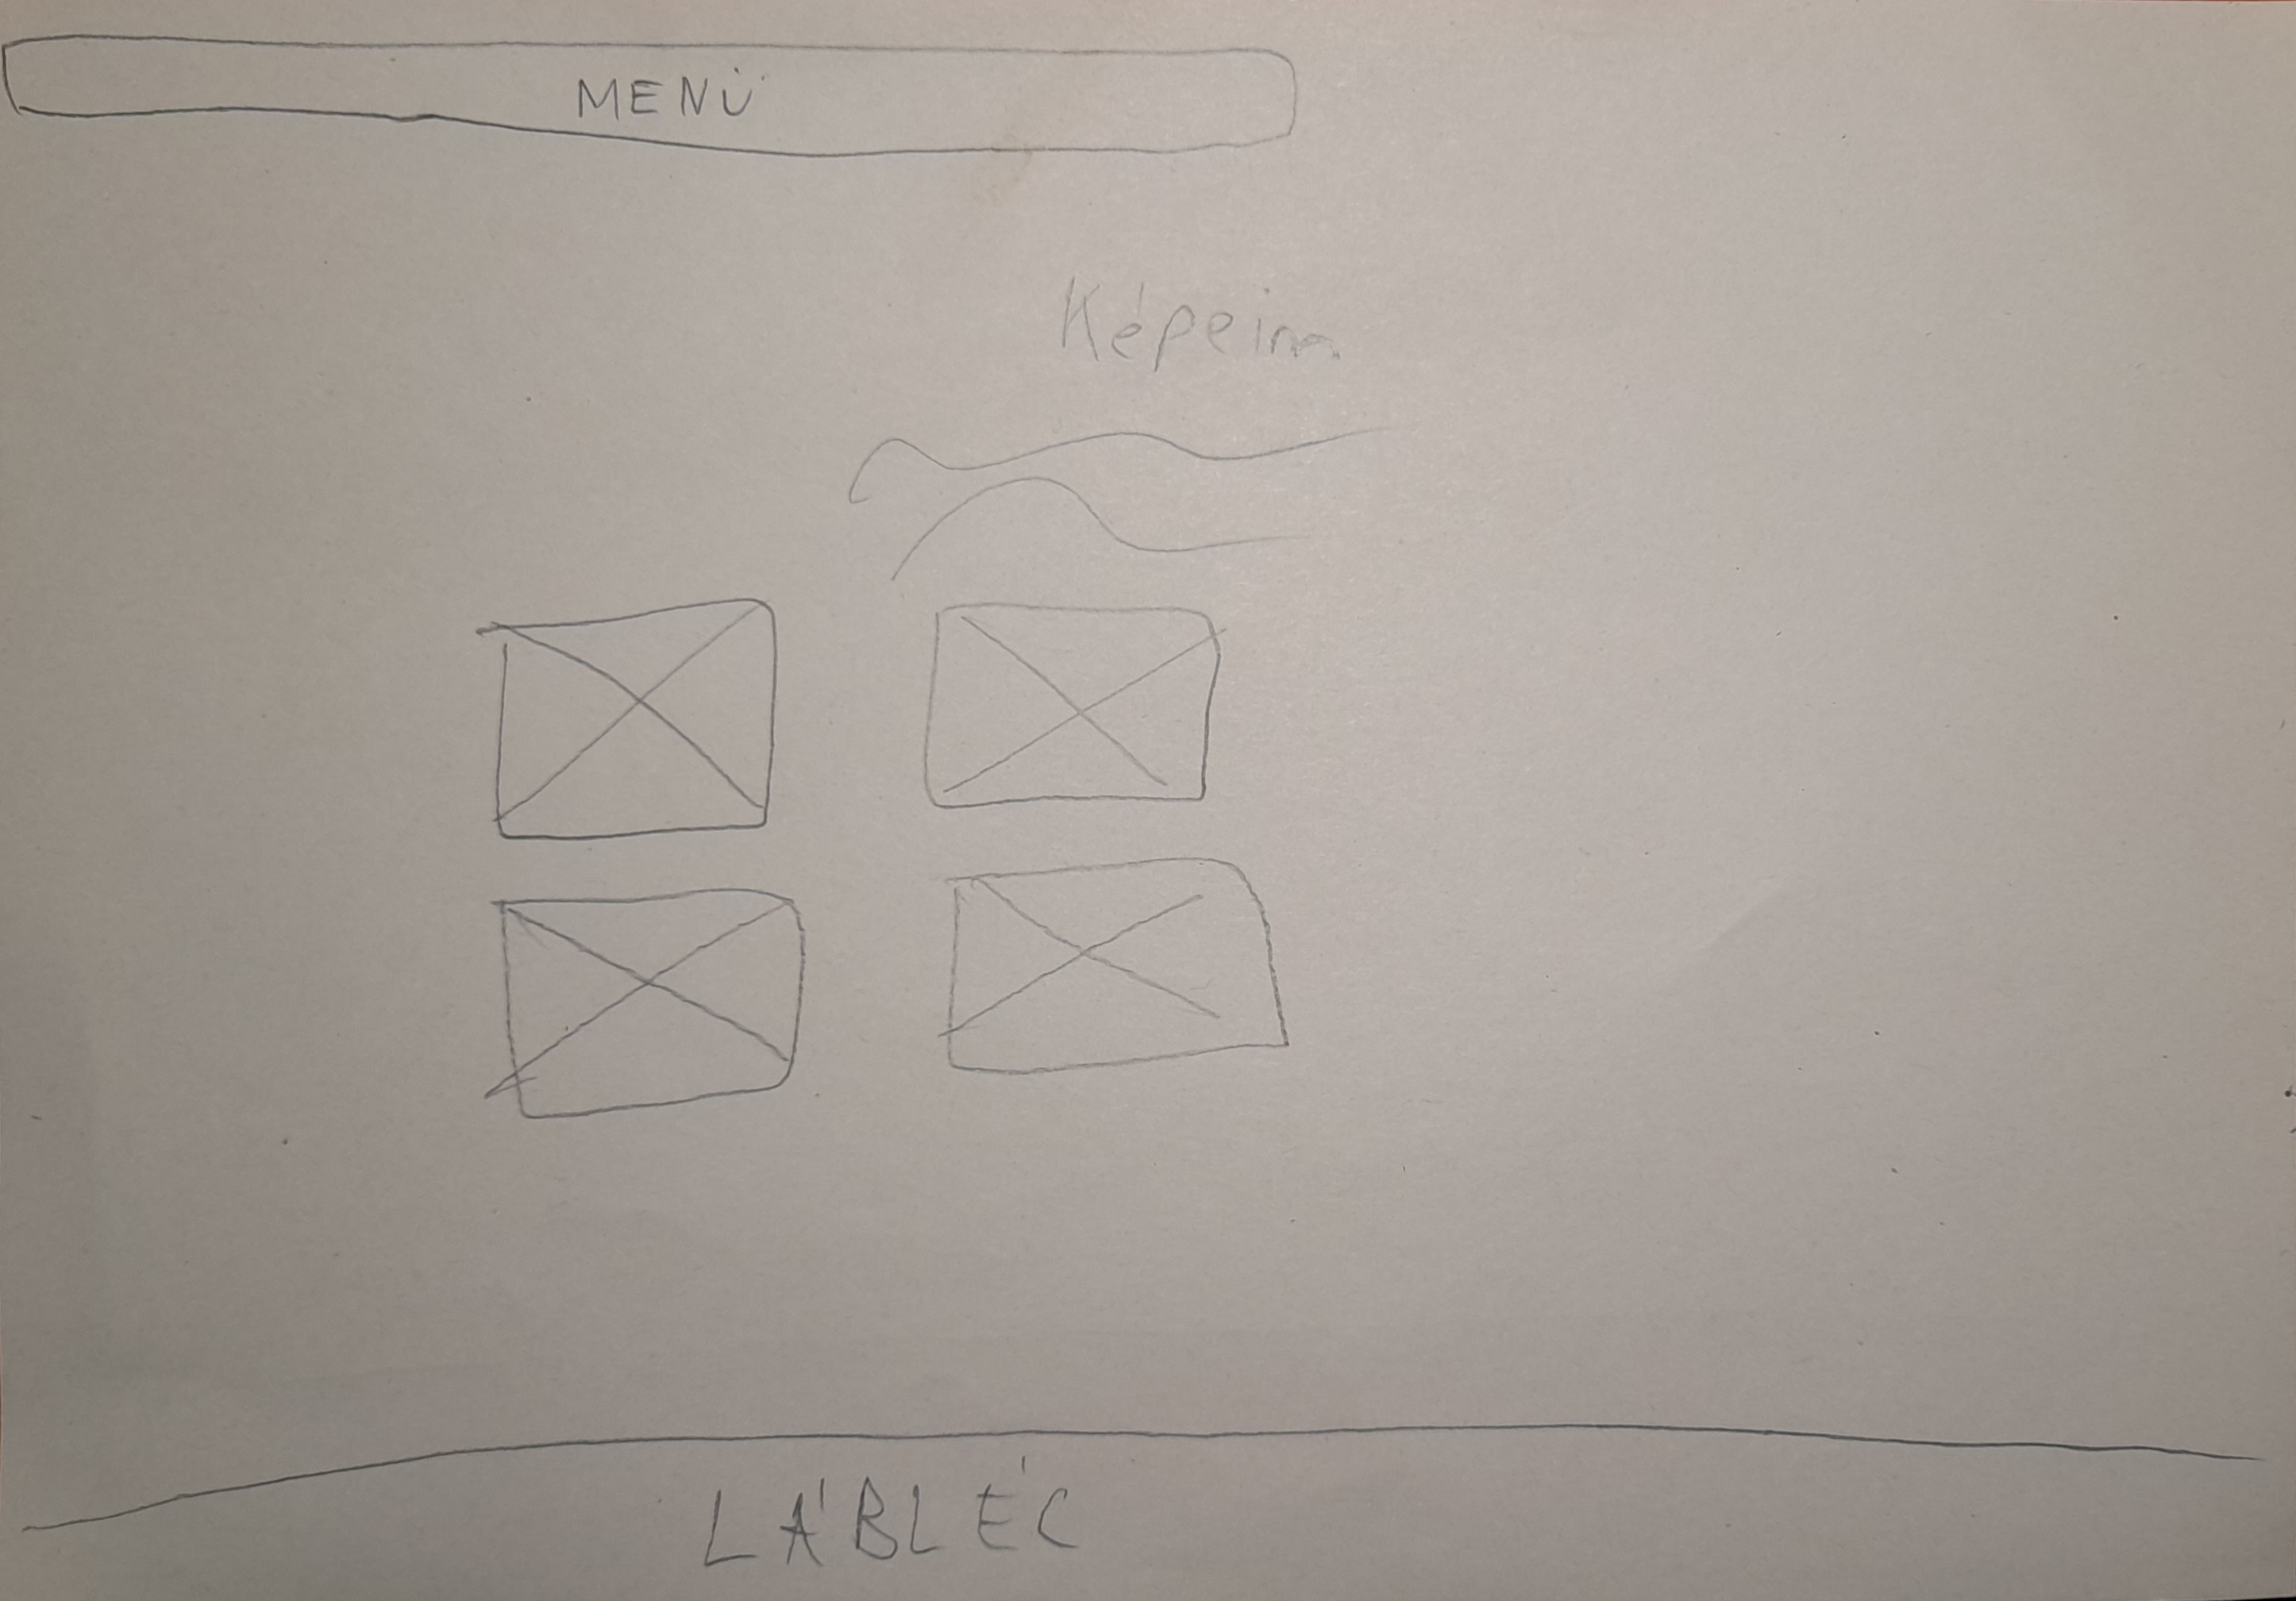 MENÜ
Képeim
LÁBLÉC